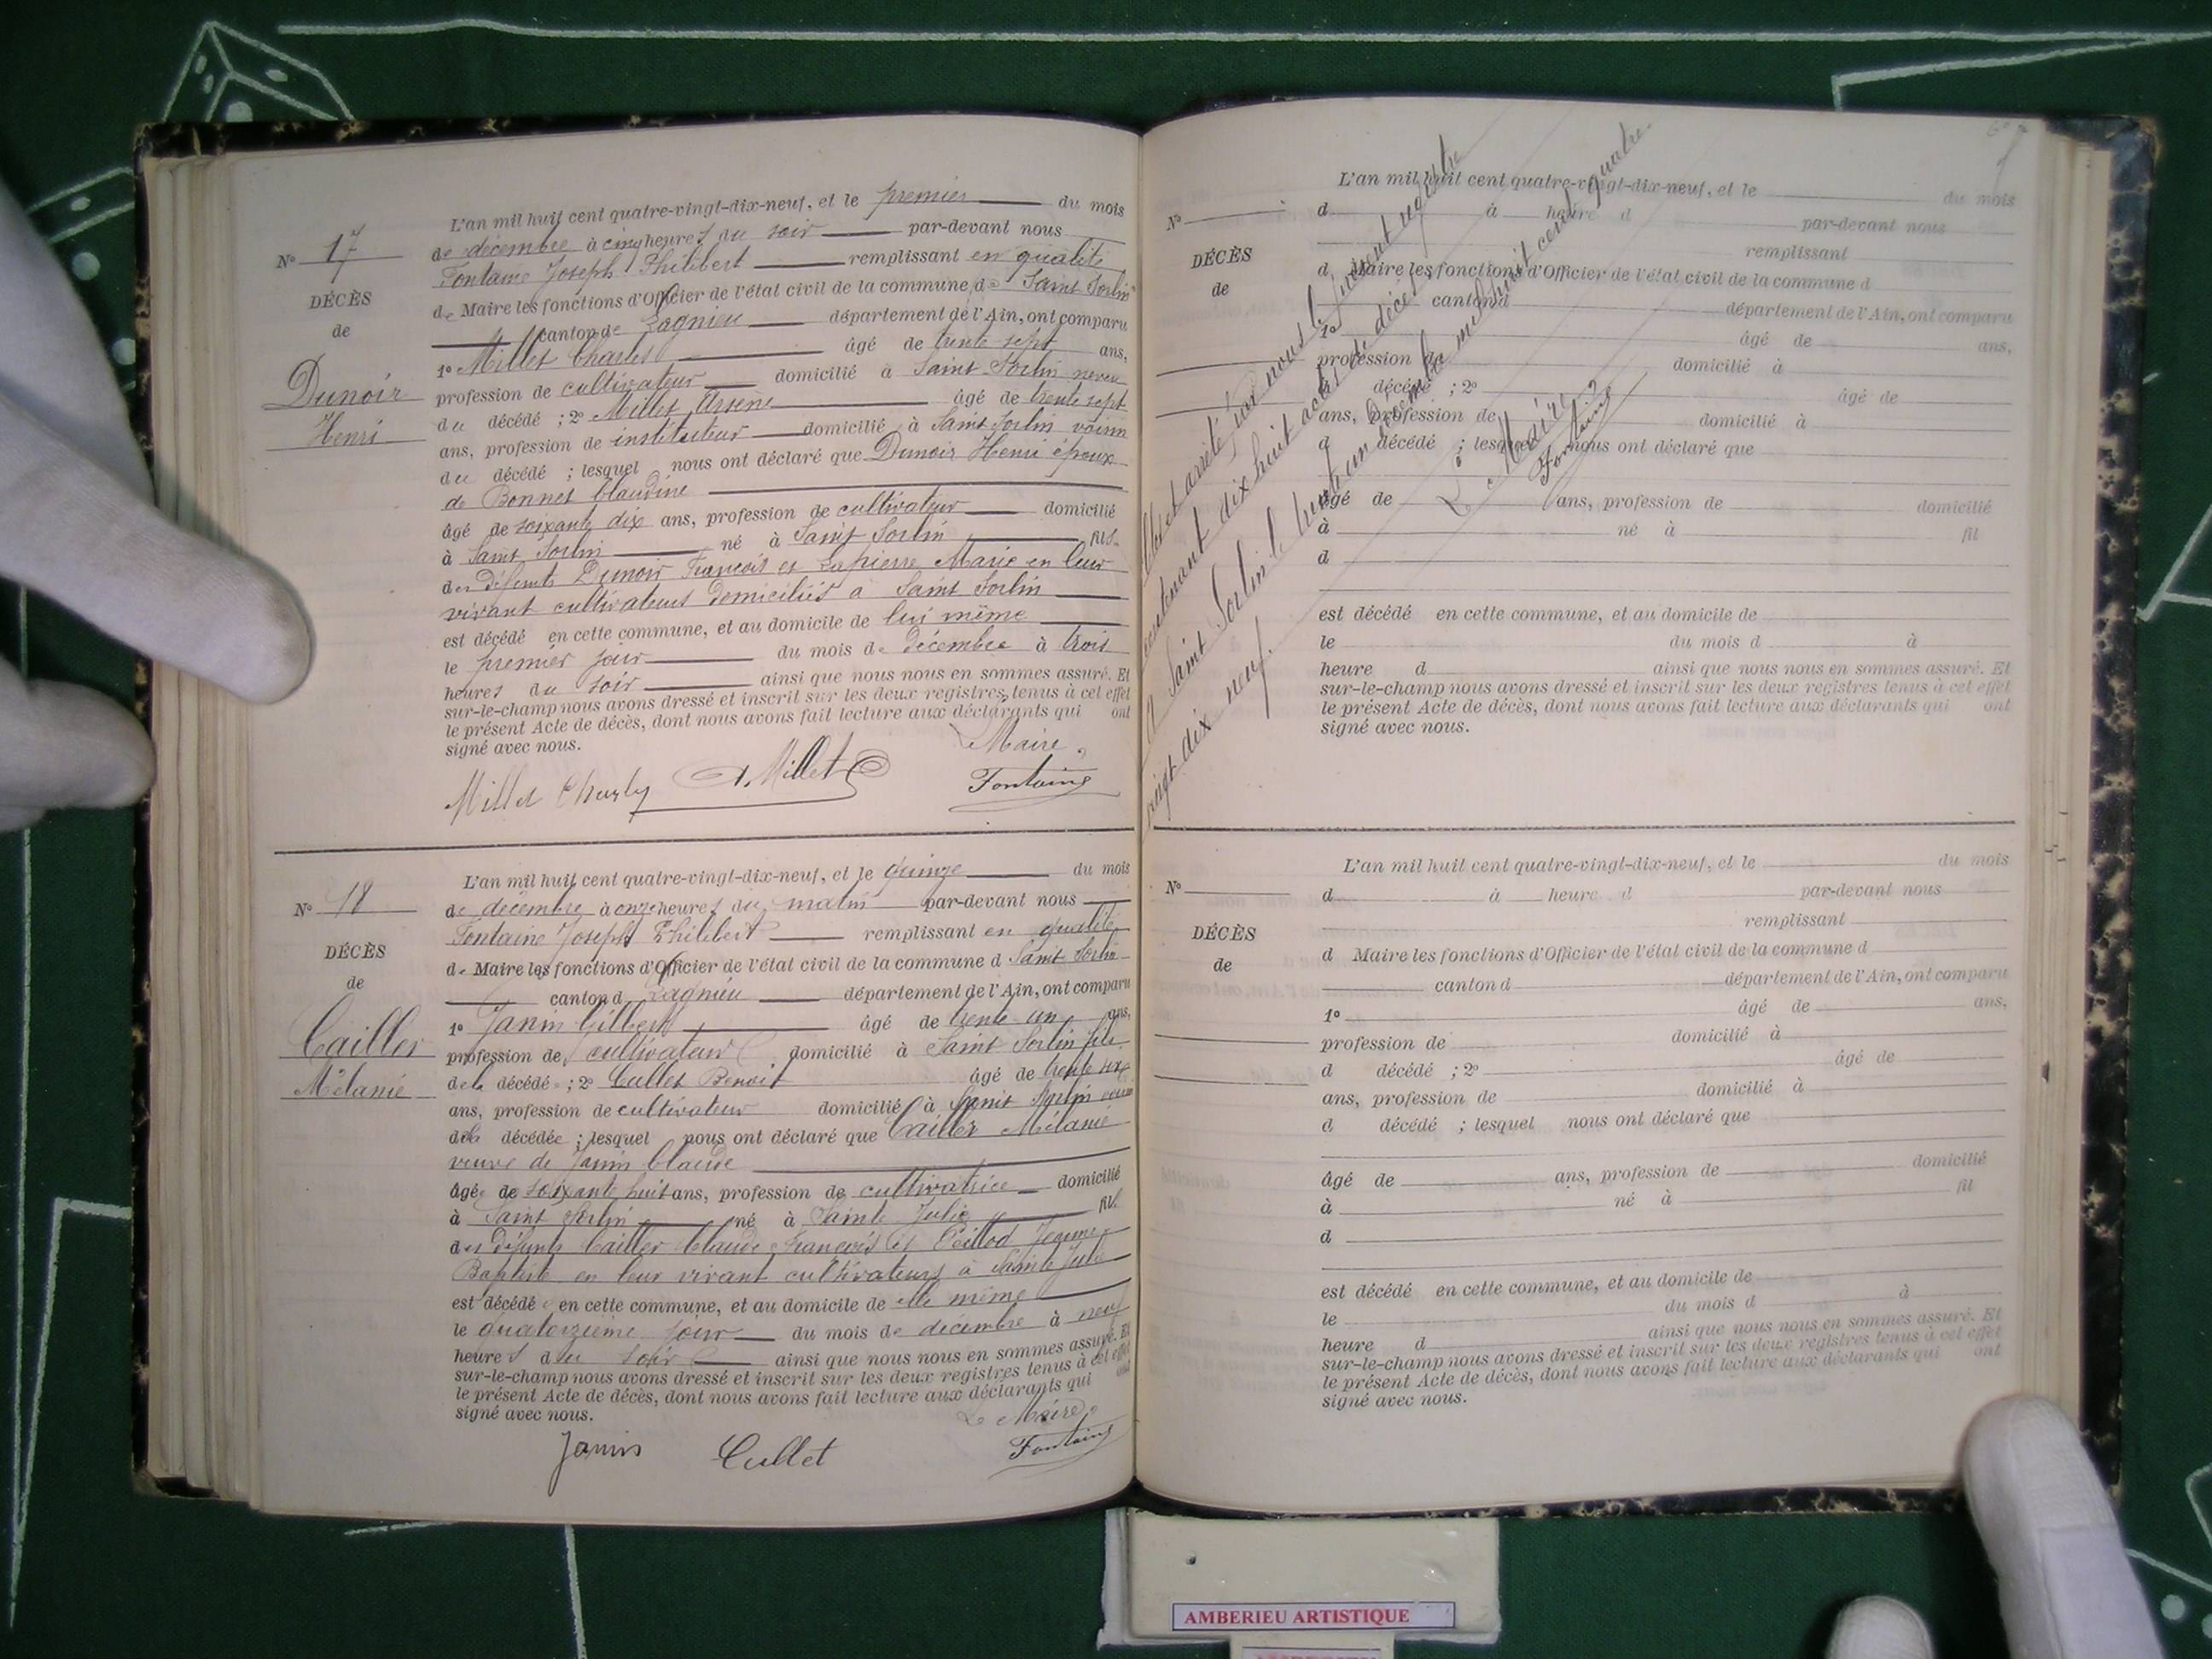 N° 17
DÉCÈS
de
Dunoir
Henri
L'an mil huit cent quatre-vingt-dix-neuf, et le premier du mois
de décembre à cinq heures du soir par-devant nous
Fontaine Joseph Philibert remplissant en qualité
de Maire les fonctions d'Officier de l'état civil de la commune de Saint Sorlin
canton de Lagnieu département de l'Ain, ont comparu
1° Millet Charles âgé de trente sept ans,
profession de cultivateur domicilié à Saint Sorlin neveu
du décédé ; 2° Millet Arsène âgé de trente sept
ans, profession de instituteur domicilié à Saint Sorlin voisin
du décédé ; lesquel nous ont déclaré que Dunoir Henri époux
de Bonnet Claudine
âgé de soixante dix ans, profession de cultivateur domicilié
à Saint Sorlin né à Saint Sorlin fils
des défunts Dunoir François et Lapierre Marie en leur
vivant cultivateurs domiciliés à Saint Sorlin
est décédé en cette commune, et au domicile de lui même
le premier jour du mois de décembre à trois
heures du soir ainsi que nous nous en sommes assuré. Et
sur-le-champ nous avons dressé et inscrit sur les deux registres tenus à cet effet
le présent Acte de décès, dont nous avons fait lecture aux déclarants qui ont
signé avec nous.
Le Maire,
Millet Charly A. Millet Fontaine
N° 18
DÉCÈS
de
Cailler
Mélanie
L'an mil huit cent quatre-vingt-dix-neuf, et le quinze du mois
de décembre à onze heures du matin par-devant nous
Fontaine Joseph Philibert remplissant en qualité
de Maire les fonctions d'Officier de l'état civil de la commune d Saint Sorlin
canton d Lagnieu département de l'Ain, ont comparu
1° Janin Gilbert âgé de trente un ans,
profession de cultivateur domicilié à Saint Sorlin fils
de la décédée ; 2° Cullet Benoit âgé de trente six
ans, profession de cultivateur domicilié à Saint Sorlin
de la décédée ; lesquel nous ont déclaré que Cailler Mélanie
veuve de Janin Claude
âgée de soixante huit ans, profession de cultivatrice domicilié
à Saint Sorlin né à Sainte Julie fil
des défunts Cailler Claude François et Peillod Jeanne
Baptiste en leur vivant cultivateurs à Sainte Julie
est décédée en cette commune, et au domicile de elle même
le quatorzième jour du mois de décembre à neuf
heures du soir ainsi que nous nous en sommes assuré. Et
sur-le-champ nous avons dressé et inscrit sur les deux registres tenus à cet effet
le présent Acte de décès, dont nous avons fait lecture aux déclarants qui ont
signé avec nous.
Le Maire,
Janin Cullet Fontaine
L'an mil huit cent quatre-vingt-dix-neuf, et le du mois
N° d à heure d par-devant nous
remplissant
DÉCÈS
de
d Maire les fonctions d'Officier de l'état civil de la commune d
canton d département de l'Ain, ont comparu
1° âgé de ans,
profession de domicilié à
d décédé ; 2° âgé de
ans, profession de domicilié à
d décédé ; lesquel nous ont déclaré que
âgé de ans, profession de domicilié
à né à fil
d
est décédé en cette commune, et au domicile de
le du mois d à
heure d ainsi que nous nous en sommes assuré. Et
sur-le-champ nous avons dressé et inscrit sur les deux registres tenus à cet effet
le présent Acte de décès, dont nous avons fait lecture aux déclarants qui ont
signé avec nous.
Clos et arrêté par nous le présent registre
contenant dix huit actes de décès
A Saint Sorlin le trente un décembre mil huit cent quatre
vingt dix neuf.
Le Maire
Fontaine
L'an mil huit cent quatre-vingt-dix-neuf, et le du mois
N° d à heure d par-devant nous
remplissant
DÉCÈS
de
d Maire les fonctions d'Officier de l'état civil de la commune d
canton d département de l'Ain, ont comparu
1° âgé de ans,
profession de domicilié à
d décédé ; 2° âgé de
ans, profession de domicilié à
d décédé ; lesquel nous ont déclaré que
âgé de ans, profession de domicilié
à né à fil
d
est décédé en cette commune, et au domicile de
le du mois d à
heure d ainsi que nous nous en sommes assuré. Et
sur-le-champ nous avons dressé et inscrit sur les deux registres tenus à cet effet
le présent Acte de décès, dont nous avons fait lecture aux déclarants qui ont
signé avec nous.
AMBERIEU ARTISTIQUE